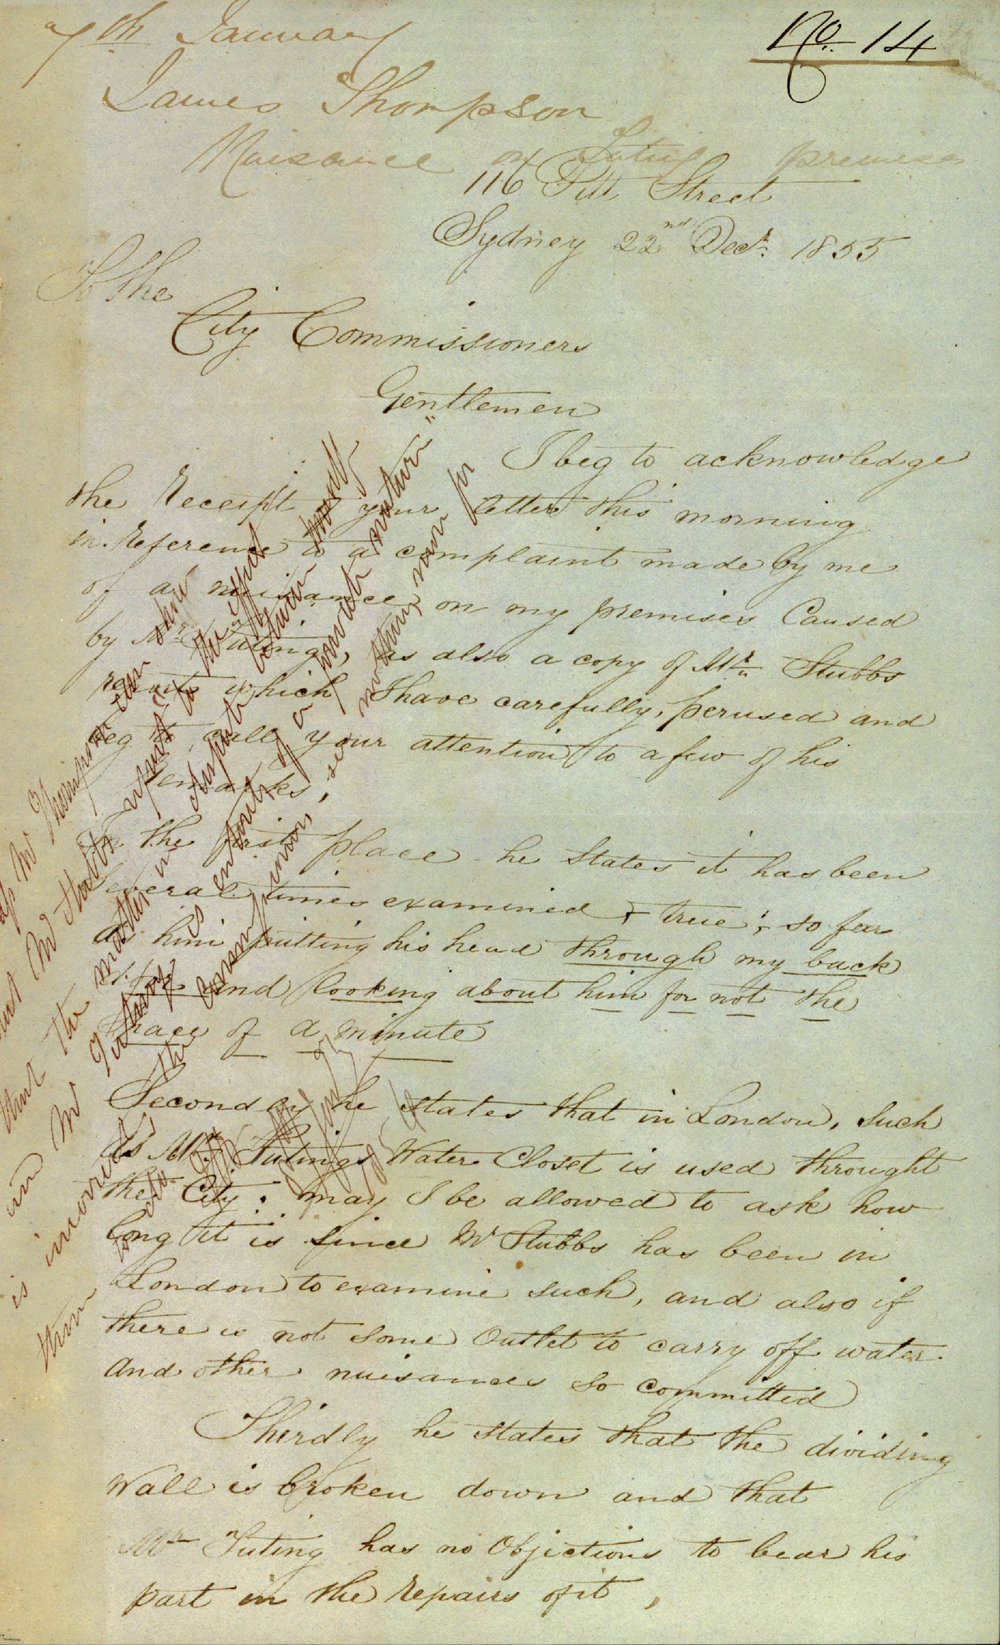 No. 14
7th January
James Thompson
Nuisance on Futing premises
116 Pitt Street
Sydney 22nd Decr. 1855
To the
City Commissioners
Gentlemen
I beg to acknowledge
the Receipt your letter this morning
in reference to a complaint made by me
of a nuisance on my premises Caused
by Mr. Futing, as also a copy of Mr. Stubbs
reports which I have carefully, perused and
beg to call your attention to a few of his
remarks,
the first place he States it has been
Several times examined + true; so far
as him putting his head through my back
and looking about him for not the
Space of a minute
Secondly he states that in London, such
as Mr. Futings Water Closet is used throught
the City. may I be allowed to ask how
long it is since Mr Stubbs has been in
London to examine such, and also if
there is not some Outlet to carry off water
and other nuisances so committed
Thirdly he states that the dividing
Wall is broken down and that
Mr Futing has no Objections to bear his
part in the repairs of it,
Mr Thompson
Mr Stubbs report to the effect
that the matter in dispute between
and Mr Futing is entirely of a private nature"
is incorrect, the Comrs
them